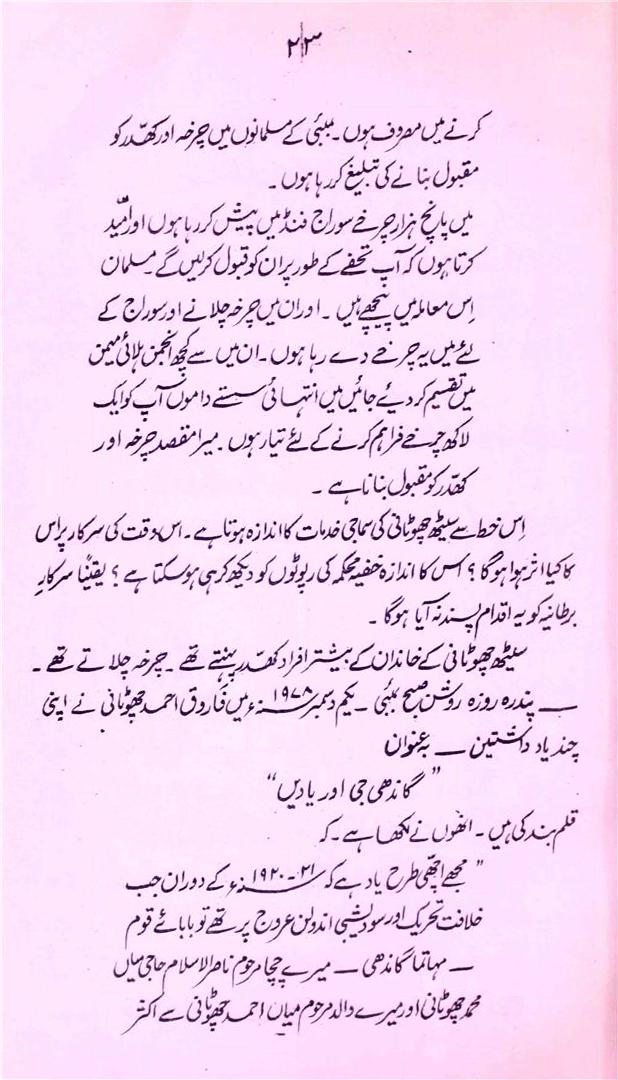 ۲۳
کرنے میں مصروف ہوں۔ بمبئی کے مسلمانوں میں چرخہ اور کھدّر کو
مقبول بنانے کی تبلیغ کر رہا ہوں۔
میں پانچ ہزار چرخے سوراج فنڈ میں پیش کر رہا ہوں اور امّید
کرتا ہوں کہ آپ تحفے کے طور پر ان کو قبول کرلیں گے۔ مسلمان
اِس معاملہ میں پیچھے ہیں۔ اور ان میں چرخہ چلانے اور سوراج کے
لئے میں یہ چرخے دے رہا ہوں۔ ان میں سے کچھ انجمن ہلائی میمن
میں تقسیم کر دیئے جائیں میں انتہائی سستے داموں آپ کو ایک
لاکھ چرخے فراہم کرنے کے لئے تیار ہوں۔ میرا مقصد چرخہ اور
کھدّر کو مقبول بنانا ہے۔
اِس خط سے سیٹھ چھوٹانی کی سماجی خدمات کا اندازہ ہوتا ہے۔ اس وقت کی سرکار پر اس
کا کیا اثر ہوا ہوگا؟ اس کا اندازہ خفیہ محکمہ کی رپوٹوں کو دیکھ کر ہی ہوسکتا ہے؟ یقیناً سرکارِ
برطانیہ کو یہ اقدام پسند نہ آیا ہوگا۔
سیٹھ چھوٹانی کے خاندان کے بیشتر افراد کھدّر پہنتے تھے۔ چرخہ چلاتے تھے۔
— پندرہ روزہ روشن صبح بمبئی۔ یکم دسمبر ۱۹۷۸ء میں فاروق احمد چھوٹانی نے اپنی
چند یاد داشتیں — بہ عنوان
”گاندھی جی اور یادیں“
قلم بند کی ہیں۔ انھوں نے لکھا ہے۔ کہ
”مجھے اچھّی طرح یاد ہے کہ ۲۱-۱۹۲۰ء کے دوران جب
خلافت تحریک اور سودیشی اندولن عروج پر تھے تو بابائے قوم
— مہاتما گاندھی — میرے چچا مرحوم ناصر الاسلام حاجی میاں
محمد چھوٹانی اور میرے والد مرحوم میاں احمد چھوٹانی سے اکثر